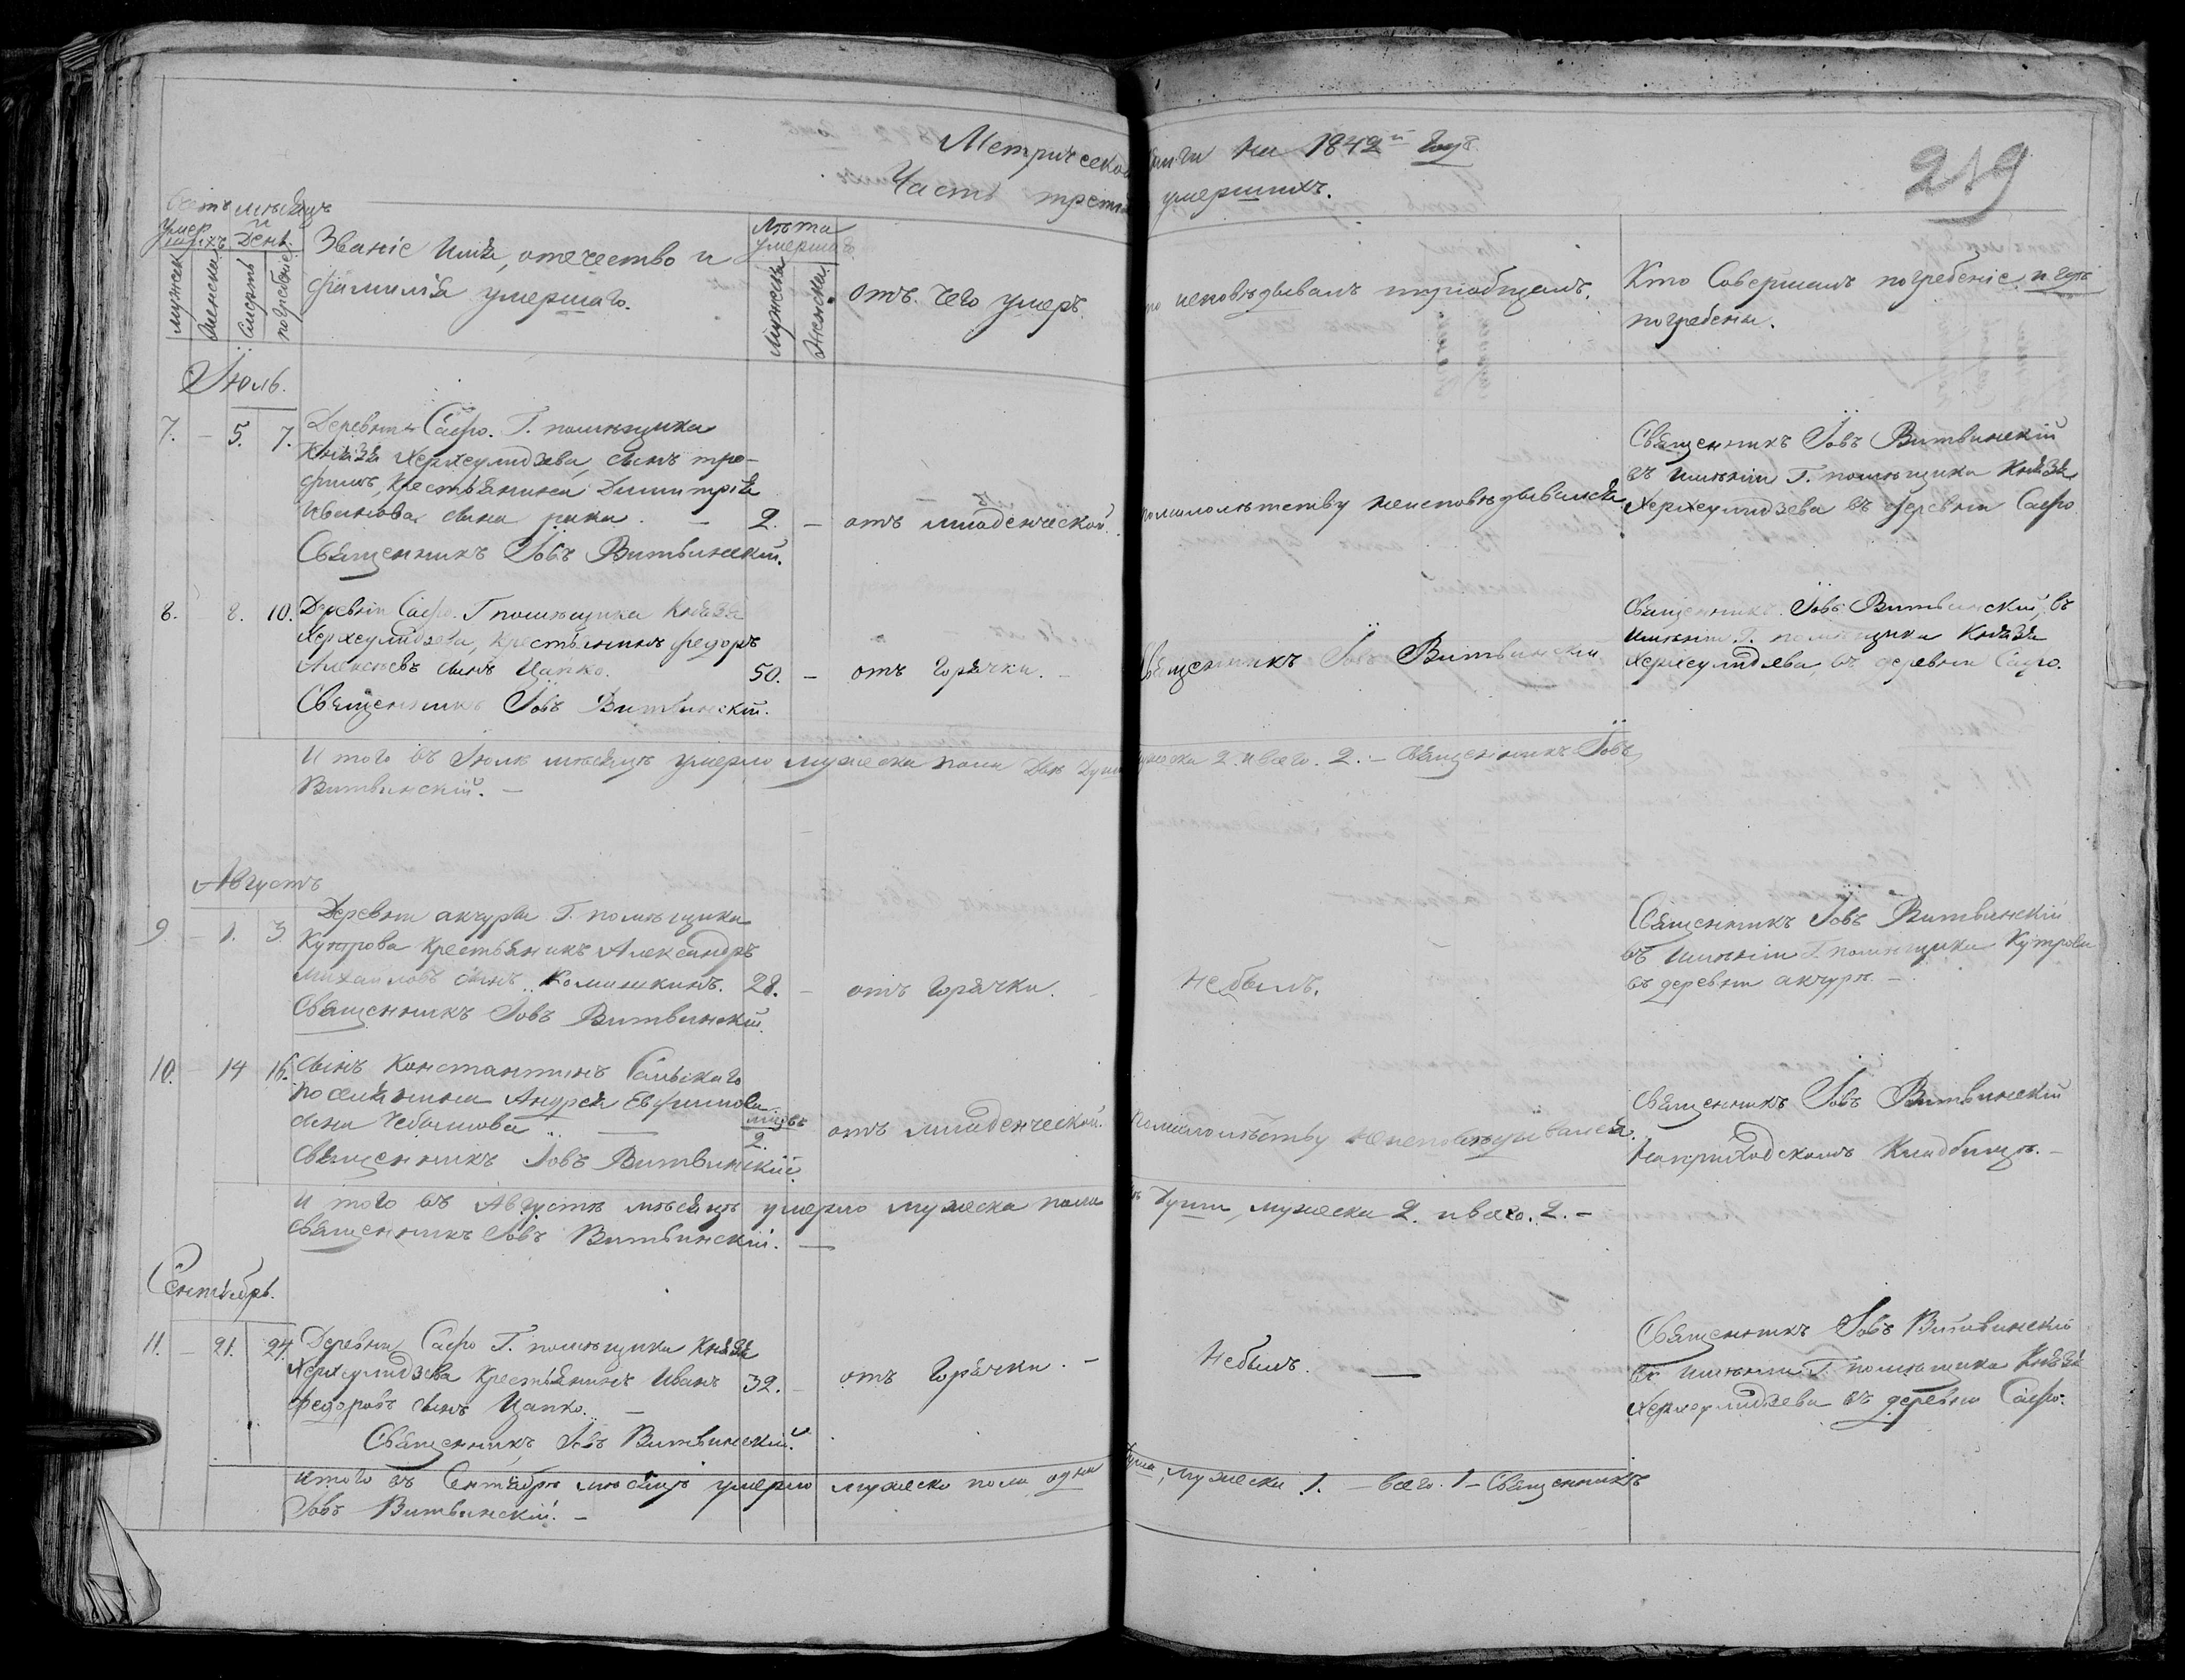 Метрической книги на 1842й годъ
219
Часть третія умершихъ.
Счетъ умершихъ
мѣсяцъ и день
мужеска
женска
смерть
погребеніе
Званіе имя, отечество и
фамилія умершаго.
Лѣта умершаго
Мужеска
Женска
отъ чего умеръ.
исповѣдывалъ и пріобщалъ.
Кто Совершалъ погребеніе, и гдѣ
погребены.
Іюль.
7. – 5. 7.
Деревни Саро. Г. помѣщика
Князя Херхеулидзева, сынъ тро-
фимъ, крестьянина Димитрія
Иванова сына
2. – отъ младенческой.
Священникъ Іовъ Витвинскій.
по малолѣтству неисповѣдывался
Священникъ Іовъ Витвинскій
въ имѣніи Г. помѣщика Князя
Херхеулидзева въ деревни Саро
8. – 8. 10.
Деревни Саро. Г помѣщика Князя
Херхеулидзева, крестьянинъ федоръ
Алексѣевъ сынъ Цапко.
50. – отъ Горячки. –
Священникъ Іовъ Витвинскій.
Священникъ Іовъ Витвинскій
Священникъ Іовъ Витвинскій, въ
имѣніи Г. помѣщика Князя
Херхеулидзева, въ деревни Саро.
И того въ Іюлѣ мѣсяцѣ умерло мужеска пола двѣ души мужеска 2. и всего. 2. – Священникъ Іовъ
Витвинскій. –
Августъ
9 – 1. 3
Деревни акчуры Г. помѣщика
Кутрова крестьянинъ Александръ
михаиловъ сынъ Комишкинъ.
28. – отъ Горячки.
Священникъ Іовъ Витвинскій.
Небылъ.
Священникъ Іовъ Витвинскій
въ имѣніи Г. помѣщика Кутрова
въ деревни акчурѣ. –
10. – 14 16.
Сынъ Константинъ
поселянина Андрея Евфимова
сына Чебышова
2. отъ младенческой.
Священникъ Іовъ Витвинскій.
помалолѣтству неисповѣдывался.
Священникъ Іовъ Витвинскій
На приходскомъ Кладбищѣ. –
И того въ Августѣ мѣсяцѣ умерло мужеска пола двѣ души, мужеска 2. и всего. 2. –
Священникъ Іовъ Витвинскій. –
Сентябрь.
11. – 21. 24.
Деревни Саро Г. помѣщика Князя
Херхеулидзева крестьянинъ Иванъ
федоровъ сынъ Цапко. –
32. – отъ Горячки. –
Небылъ. –
Священникъ Іовъ Витвинскій
въ имѣніи Г. помѣщика Князя
Херхеулидзева въ деревни Саро.
Священникъ Іовъ Витвинскій.
Итого въ Сентябрѣ мѣсяцѣ умерло мужеска пола одна душа, мужеска 1. – всего. 1 – Священникъ
Іовъ Витвинскій. –